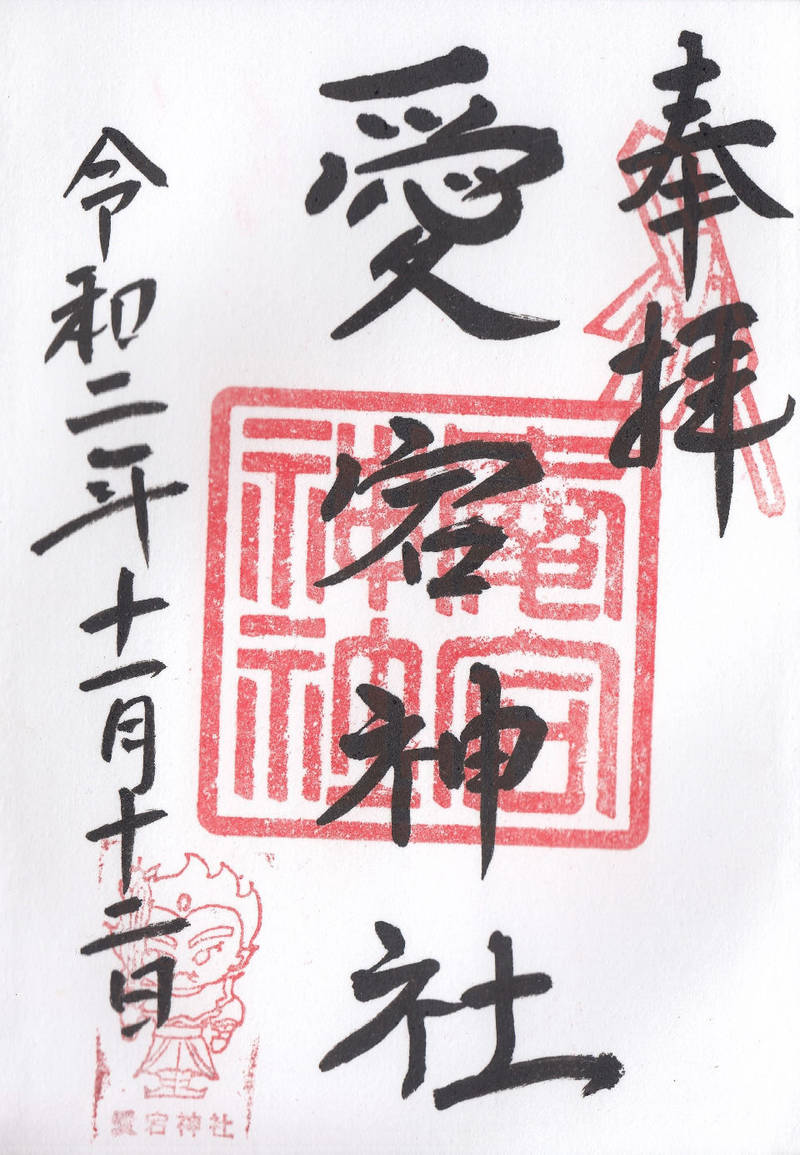 奉拝
愛宕神社
令和二年十一月十二日
愛宕神社
愛宕神社